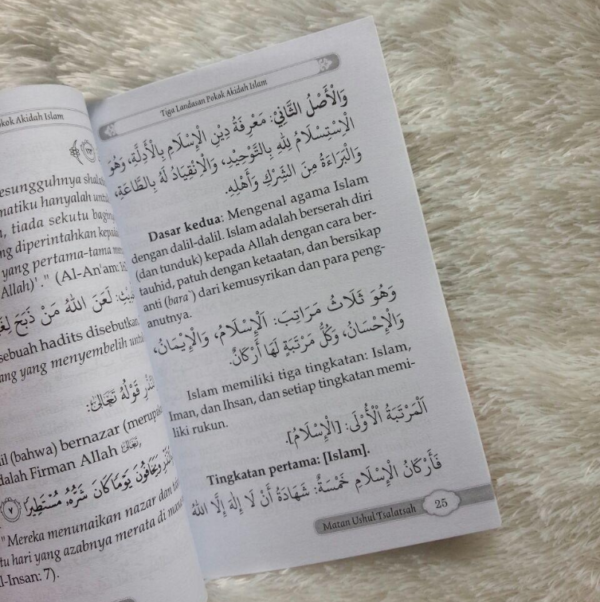 kok Akidah Islam
esungguhnya shala
matiku hanyalah untu
tiada sekutu bagi
ng diperintahkan kepada
yang pertama-tama
Allah)'." (Al-An'am:
لَعَنَ اللهُ مَنْ ذَبَحَ
sebuah hadits disebutkan
ang yang menyembelih untu
قَوْلُهُ تَعَالَى:
il (bahwa) bernazar (merupa
dalah Firman Allah
وَيَخَافُونَ يَوْمًا كَانَ شَرُّهُ مُسْتَطِيرًا ٧
"Mereka menunaikan nazar dan
tu hari yang azabnya merata di ma
l-Insan: 7).
Tiga Landasan Pokok Akidah Islam
وَالْأَصْلُ الثَّانِيْ: مَعْرِفَةُ دِيْنِ الْإِسْلَامِ بِالْأَدِلَّةِ، وَهُوَ
الْاِسْتِسْلَامُ لِلّٰهِ بِالتَّوْحِيْدِ، وَالْاِنْقِيَادُ لَهُ بِالطَّاعَةِ،
وَالْبَرَاءَةُ مِنَ الشِّرْكِ وَأَهْلِهِ.
Dasar kedua: Mengenal agama Islam
dengan dalil-dalil. Islam adalah berserah diri
(dan tunduk) kepada Allah dengan cara ber-
tauhid, patuh dengan ketaatan, dan bersikap
anti (bara`) dari kemusyrikan dan para peng-
anutnya.
وَهُوَ ثَلَاثُ مَرَاتِبَ: اَلْإِسْلَامُ، وَالْإِيْمَانُ،
وَالْإِحْسَانُ، وَكُلُّ مَرْتَبَةٍ لَهَا أَرْكَانٌ.
Islam memiliki tiga tingkatan: Islam,
Iman, dan Ihsan, dan setiap tingkatan memi-
liki rukun.
اَلْمَرْتَبَةُ الْأُوْلَى: [اَلْإِسْلَامُ].
Tingkatan pertama: [Islam].
فَأَرْكَانُ الْإِسْلَامِ خَمْسَةٌ: شَهَادَةُ أَنْ لَا إِلٰهَ إِلَّا اللهُ
Matan Ushul Tsalatsah 25